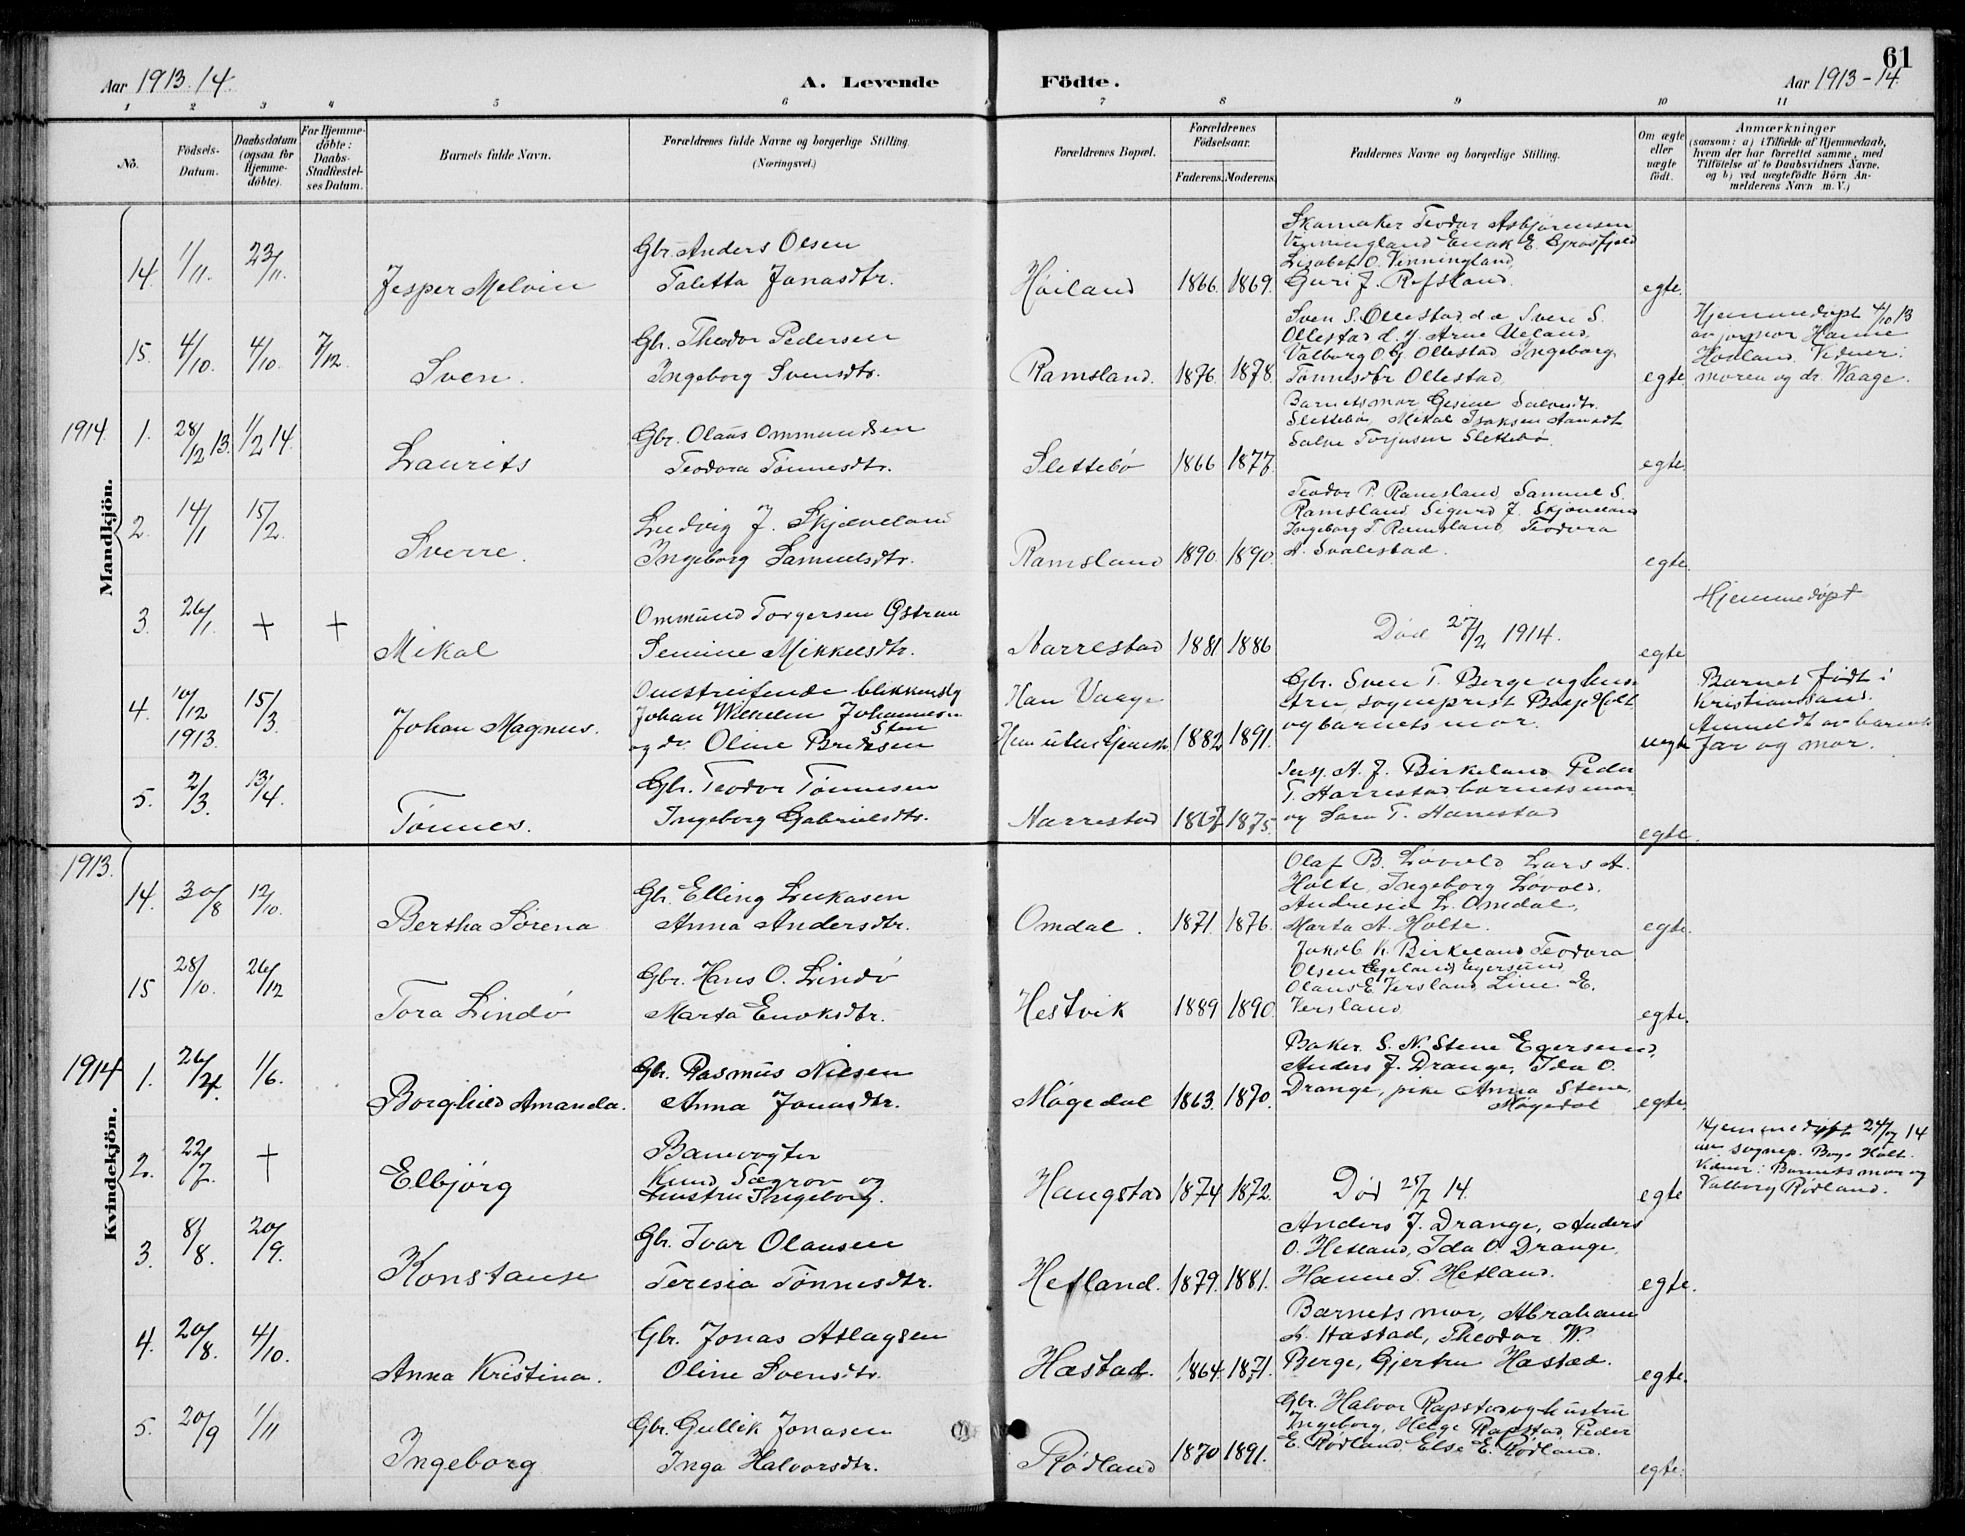 61
Aar 1913.14.
A. Levende Födte.
Aar 1913-14
1 2 3 4 5 6 7 8 9 10 11
Nö.
Födsels-Datum.
Daabsdatum (ogsaa for Hjemme-döbte).
For Hjemme-döbte: Daabs-Stadfæstel-ses Datum.
Barnets fulde Navn.
Forældrenes fulde Navne og borgerlige Stilling. (Næringsvei.)
Forældrenes Bopæl.
Forældrenes Födselsaar.
Faderens. Moderens.
Faddernes Navne og borgerlige Stilling.
Om ægte eller uægte født.
Anmærkninger
(saasom: a) i Tilfælde af Hjemmedaab, hvem der har forrettet samme, med Tilföielse af to Daabsvidners Navne, og b) ved uægtefödte Börn Anmelderens Navn m. V.)
Mandkjön.
14. 1/11. 23/11.
Jesper Melvin
Gbr. Anders Olsen
Taletta Jonasdtr.
Høiland 1866. 1869.
Skomaker Teodor Asbjørnsen
Vinningland Enok E. Gjrosfjeld
Lisabet O. Vinningland,
Guri J. Rofsland.
egte.
15. 4/10. 4/10. 7/12.
Sven.
Gbr. Theodor Pedersen
Ingeborg Svensdtr.
Ramsland. 1876. 1878.
Sven S. Ollestad d.æ Sven S.
Ollestad d. y Arne Ueland,
Valborg O G Ollestad Ingeborg
Tønnesdtr Ollestad.
egte.
Hjemmedøpt 4/10 13
av jormor Hanne
Hovland. Vidner:
moren og dr. Waage.
1914. 1. 28/12 13. 1/2 14.
Laurits
Gbr. Olaus Ommundsen
Teodora Tønnesdtr.
Slettebø 1866 1877.
Barnets mor Gesine Salvesdtr.
Slettebø, Mikal Isaksen Aamodt
Salve Torjusen Slettebø.
egte.
2. 14/1 15/2.
Sverre.
Ludvig J. Skjæveland
Ingeborg Samuelsdtr.
Ramsland 1890. 1890.
Teodor P. Ramsland, Samuel S.
Ramsland Sigurd J. Skjæveland
Ingeborg T. Ramsland, Teodora
A. Svalestad.
egte.
3. 26/1. + +
Mikal
Ommund Torgersen Østrem
Semine Mikkelsdtr.
Narrestad 1881 1886
Død 27/2 1914.
egte
Hjemmedøpt
4. 10/12 1913. 15/3.
Johan Magnus.
Omstreifende blikkenslg
Johan Wilhelm Johannesn
Sten
og dr. Oline Bredesen
Han Vaage
Hun uten hjemst. 1882 1891.
Gbr. Sven T. Berge og hus-
tru, sogneprest Baage Holt
og barnets mor.
uegte
Barnet født i
Kristianssand.
Anmeldt av barnets
far og mor.
5. 2/3. 13/4.
Tønnes.
Gbr. Teodor Tønnesen
Ingeborg Gabrielsdtr.
Narrestad 1867 1875.
A. J. Birkeland Peder
T. Harrestad barnets mor
og Sara T. Harrestad
egte.
1913.
Kvindekjön.
14. 30/8 12/10.
Bertha Sørena
Gbr. Elling Lukasen
Anna Andersdtr.
Omdal. 1871. 1876.
Olaf B. Løvold Lars A.
Holte, Ingeborg Løvold.
Andresia L. Omdal,
Marta A. Holte.
egte.
15 28/10. 26/12
Tora Lindø
Gbr. Hans O. Lindø
Marta Enoksdtr.
Hestvik 1889 1890.
Jakob K. Birkeland Teodora
Olsen Egeland, Egersund,
Olaus E. Versland, Line E.
Versland
egte.
1914 1. 26/4. 1/6.
Borghild Amanda.
Gbr. Rasmus Nilsen
Anna Jonasdtr.
Møgedal 1863. 1870.
Baker S. N. Stene Egersund,
Anders J. Drange, Ida O.
Drange, pike Anna Stene,
Møgedal
egte.
2. 22/7. +
Elbjørg
Banevogter
Knud Sægrov og
hustru Ingeborg.
Haugstad 1874 1872.
Død 25/7 14.
egte
Hjemmedøpt 24/7 14
av sognep. Bage Holt.
Vidner: Barnets mor og
Valborg Rødland.
3. 8/8. 20/9.
Konstanse
Gbr. Ivar Olausen
Teresia Tønnesdtr.
Hetland. 1879. 1881.
Anders J. Drange, Anders
O. Hetland, Ida O. Drange,
Hanne T. Hetland.
egte.
4. 20/8. 4/10.
Anna Kristina.
Gbr. Jonas Aslagsen
Oline Svensdtr.
Hæstad. 1864. 1871.
Barnets mor, Abraham
A. Hæstad, Theodor W.
Berge, Gjertru Hæstad.
egte.
5. 20/9 1/11
Ingeborg
Gbr. Gullik Jonasen
Inga Halvorsdtr.
Rødland 1870 1891.
Gbr. Halvor Rapstad og hustru
Ingeborg, Helge Rapstad, Peder
E. Rødland, Else E. Rødland.
egte.